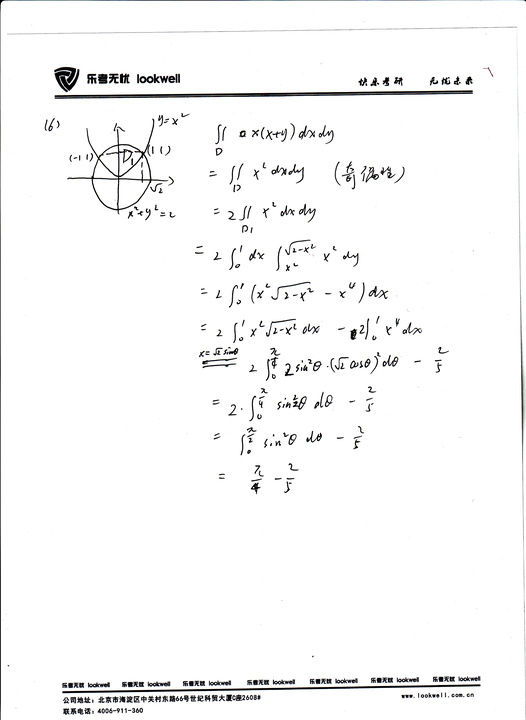 乐考无忧 lookwell
快乐考研 无忧未来
(6)
y=x²
(-1 1)
D₁
(1 1)
√2
x²+y²=2
∬_D x(x+y)dxdy
= ∬_D x² dxdy (奇偶性)
= 2∬_{D₁} x² dxdy
= 2∫₀¹ dx ∫_{x²}^{√(2-x²)} x² dy
= 2∫₀¹ (x²√(2-x²) - x⁴)dx
= 2∫₀¹ x²√(2-x²) dx - 2∫₀¹ x⁴ dx
x=√2 sinθ 2∫₀^{π/4} 2sin²θ·(√2 cosθ)² dθ - 2/5
= 2·∫₀^{π/4} sin²2θ dθ - 2/5
= ∫₀^{π/2} sin²θ dθ - 2/5
= π/4 - 2/5
乐考无忧 lookwell 乐考无忧 lookwell 乐考无忧 lookwell 乐考无忧 lookwell 乐考无忧 lookwell 乐考无忧 lookwell 乐考无忧 lookwell
公司地址: 北京市海淀区中关村东路66号世纪科贸大厦C座2608# www.lookwell.com
联系电话: 4006-911-360